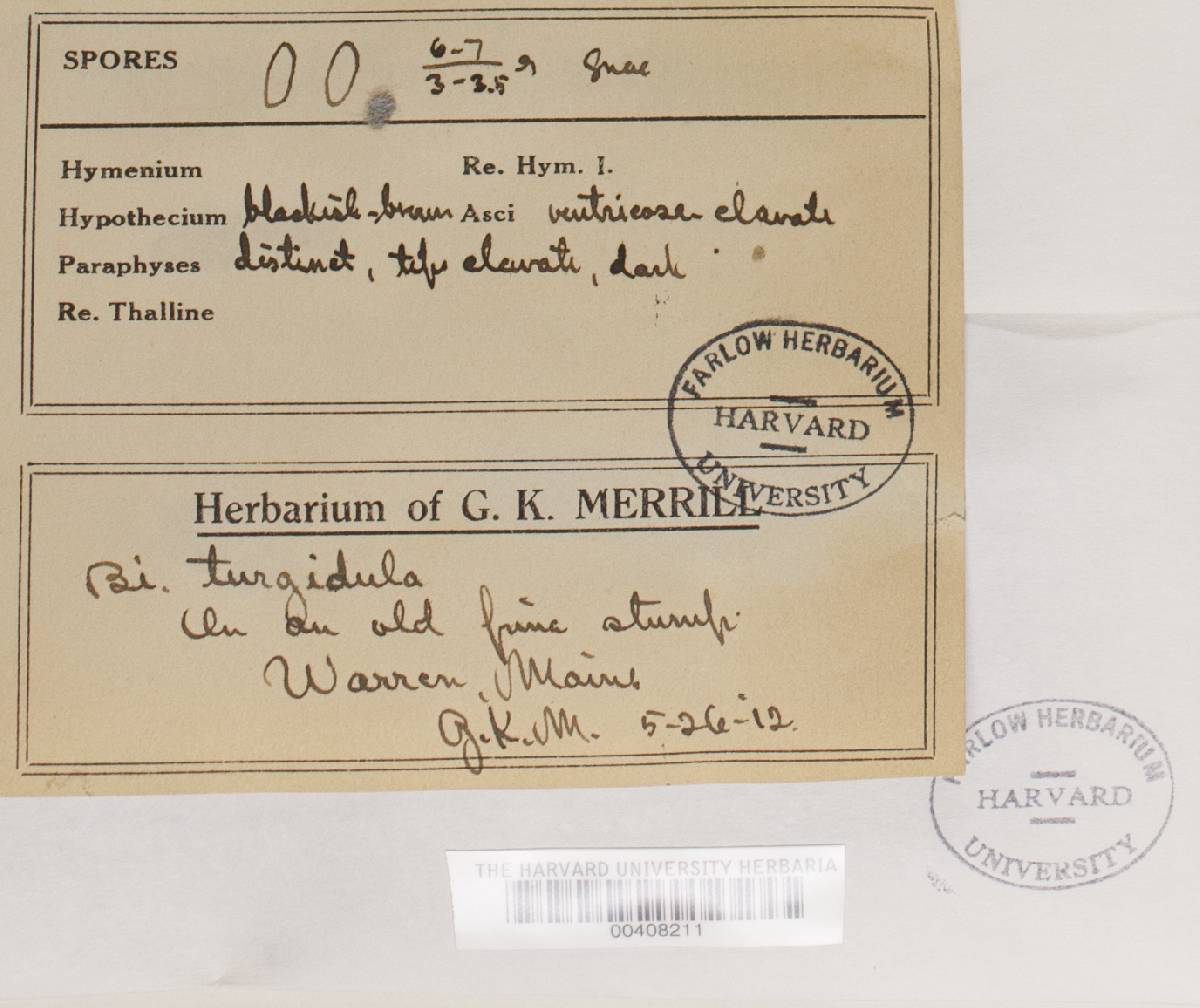 SPORES 6-7 / 3-3.5
Hymenium Re. Hym. I.
Hypothecium blackish-brown Asci ventricose clavate
Paraphyses distinct, tips clavate, dark
Re. Thalline
FARLOW HERBARIUM
HARVARD
UNIVERSITY
Herbarium of G. K. MERRILL
Bi. turgidula
On an old pine stump
Warren, Maine
G.K.M. 5-26-12.
FARLOW HERBARIUM
HARVARD
UNIVERSITY
THE HARVARD UNIVERSITY HERBARIA
00408211